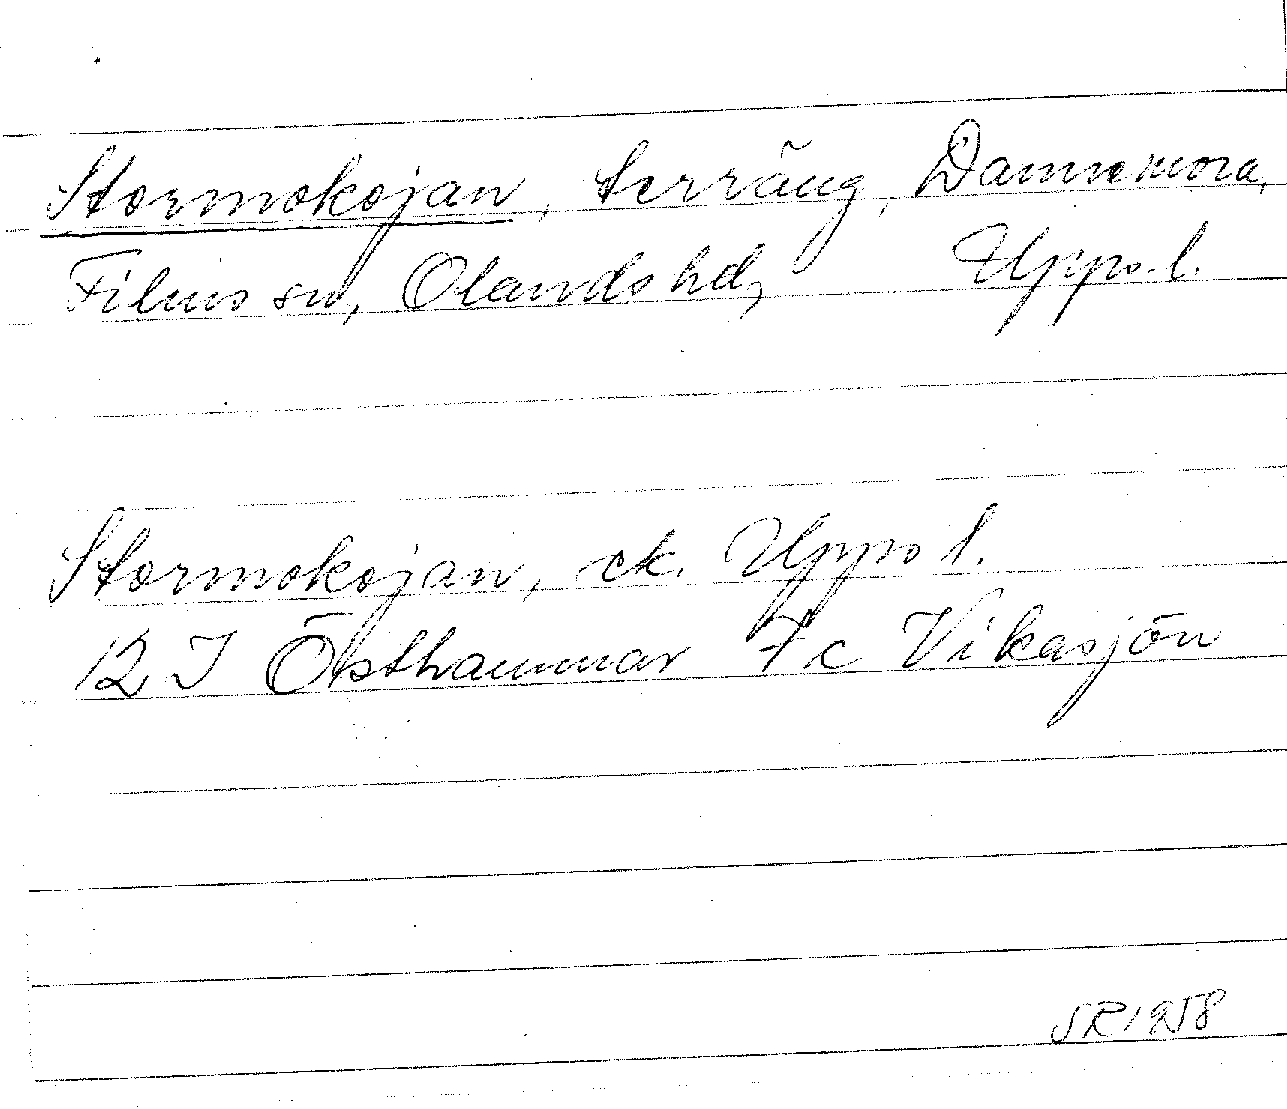 Stormokojan, terräng, Dannemora,
Films sn, Olands hd, Upps. l.
Stormokojan, ek. Upps l.
12 I Östhammar 7 c Vikasjön
SR 1958